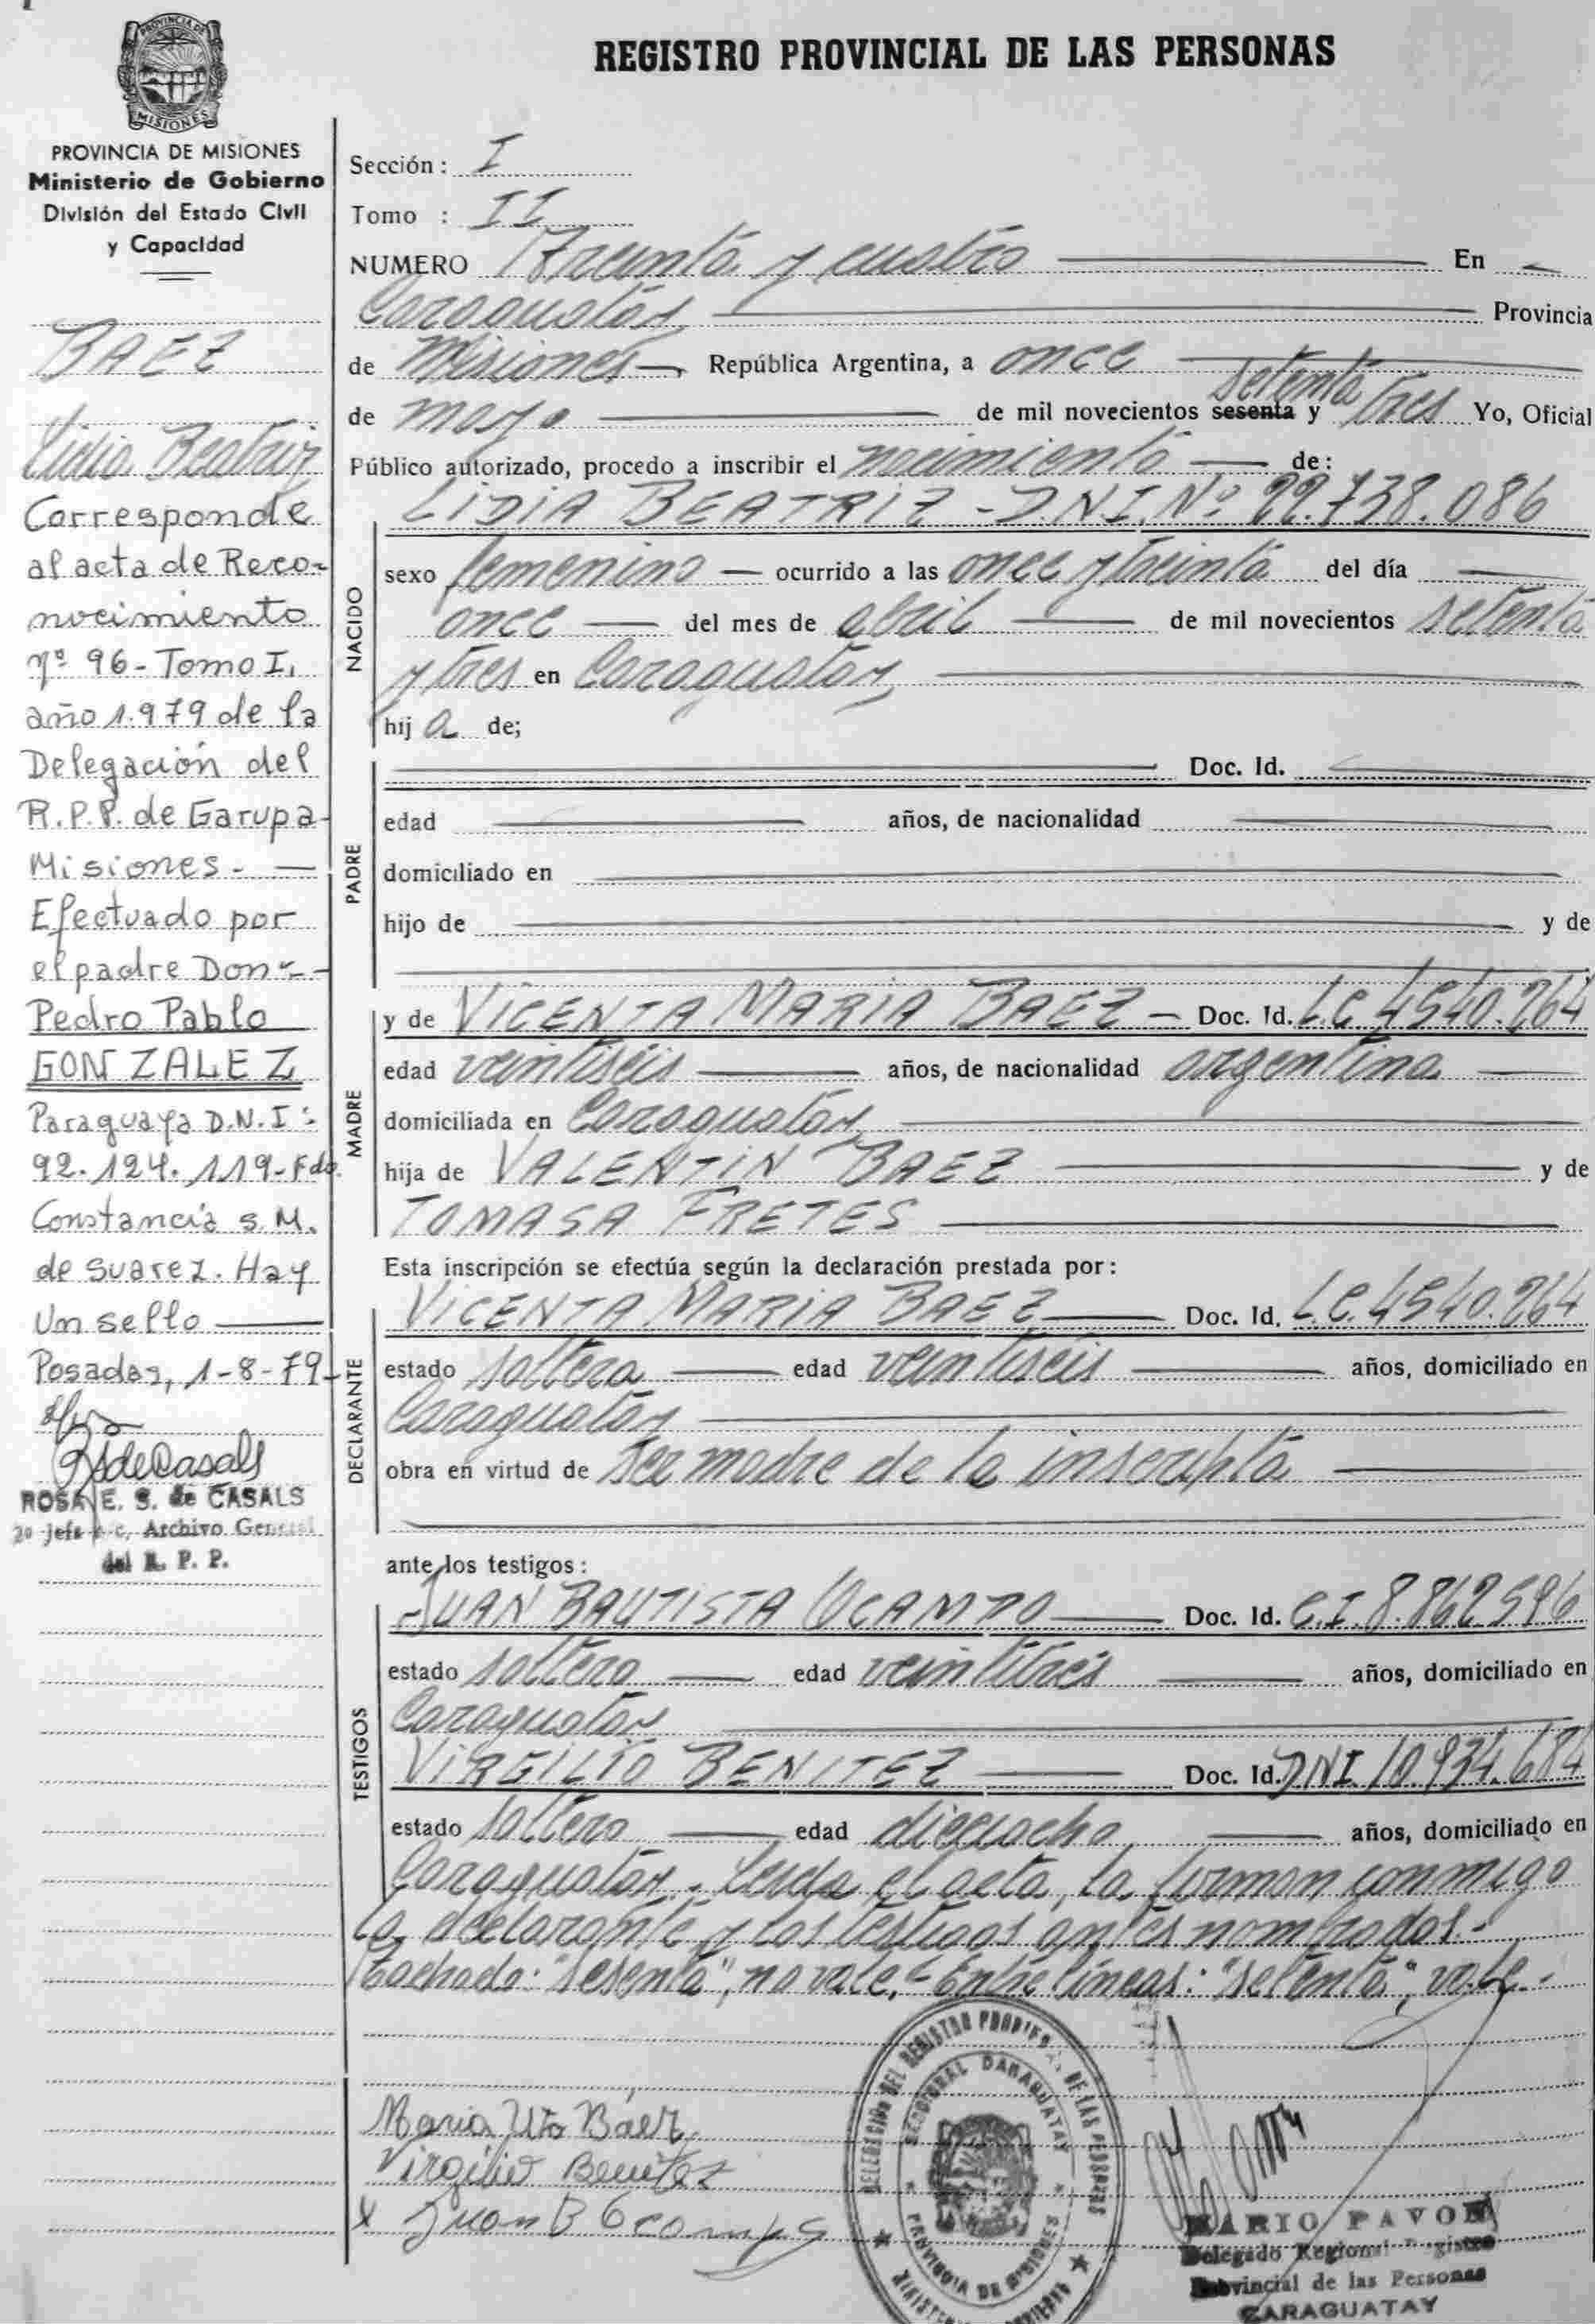 REGISTRO PROVINCIAL DE LAS PERSONAS
PROVINCIA DE
MISIONES
PROVINCIA DE MISIONES
Ministerio de Gobierno
División del Estado Civil
y Capacidad
BAEZ
Lidia Beatriz
Corresponde
al acta de Reco-
nocimiento
nº 96 - Tomo I,
año 1.979 de la
Delegación del
R.P.P. de Garupa-
Misiones. —
Efectuado por
el padre Don -
Pedro Pablo
GONZALEZ
Paraguaya D.N.I:
92.124.119 - Fdo.
Constancia S.M.
de Suarez. Hay
Un sello —
Posadas, 1-8-79-
RSdeCasals
ROSA E. S. de CASALS
2º Jefe a/c. Archivo General
del R. P. P.
Sección: I
Tomo : II
NUMERO Treinta y cuatro — En —
Caraguatay — Provincia
de Misiones —, República Argentina, a once —
setenta
de mayo — de mil novecientos sesenta y tres Yo, Oficial
Público autorizado, procedo a inscribir el nacimiento — de:
NACIDO
LIDIA BEATRIZ - D.N.I. Nº 22.738.086
sexo femenino — ocurrido a las once y treinta del día —
once — del mes de abril — de mil novecientos setenta
y tres en Caraguatay —
hij a de;
PADRE
— Doc. Id. —
edad — años, de nacionalidad —
domiciliado en —
hijo de — y de
—
MADRE
y de VICENTA MARIA BAEZ — Doc. Id. L.C 4540.264
edad veintiséis — años, de nacionalidad argentina —
domiciliada en Caraguatay —
hija de VALENTIN BAEZ — y de
TOMASA FRETES —
Esta inscripción se efectúa según la declaración prestada por:
DECLARANTE
VICENTA MARIA BAEZ — Doc. Id. L.C. 4540.264
estado soltera — edad veintiseis — años, domiciliado en
Caraguatay —
obra en virtud de ser madre de la inscripta —
—
ante los testigos:
TESTIGOS
JUAN BAUTISTA OCAMPO — Doc. Id. C.I. 8.862596
estado soltero — edad veintitrés — años, domiciliado en
Caraguatay —
VIRGILIO BENITEZ — Doc. Id. DNI. 10.934.684
estado soltero — edad dieciocho — años, domiciliado en
Caraguatay. Leída el acta, la firman conmigo
la declarante y los testigos antes nombrados.-
Tachado: "sesenta", no vale. - Entre líneas: "setenta", vale.-
Maria Báez
Virgilio Benitez
x Juan B Ocampo
DELEGACION DEL REGISTRO PROVINCIAL DE LAS PERSONAS
SECCIONAL CARAGUATAY
PROVINCIA DE MISIONES
MARIO PAVON
Delegado Regional Registro
Provincial de las Personas
CARAGUATAY